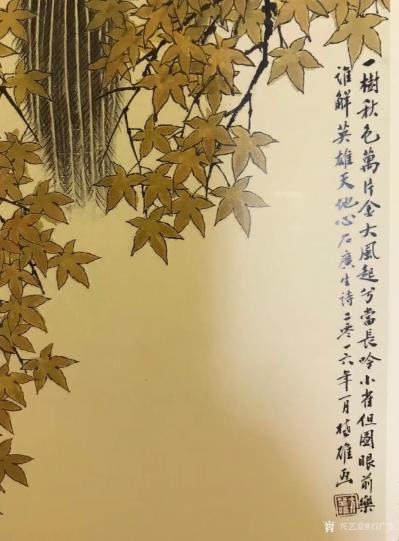 一樹秋色萬片金大風起兮當長吟小雀但圖眼前樂
誰解英雄天地心石廣生詩二零一六年一月 雄画
兴艺堂@石广生